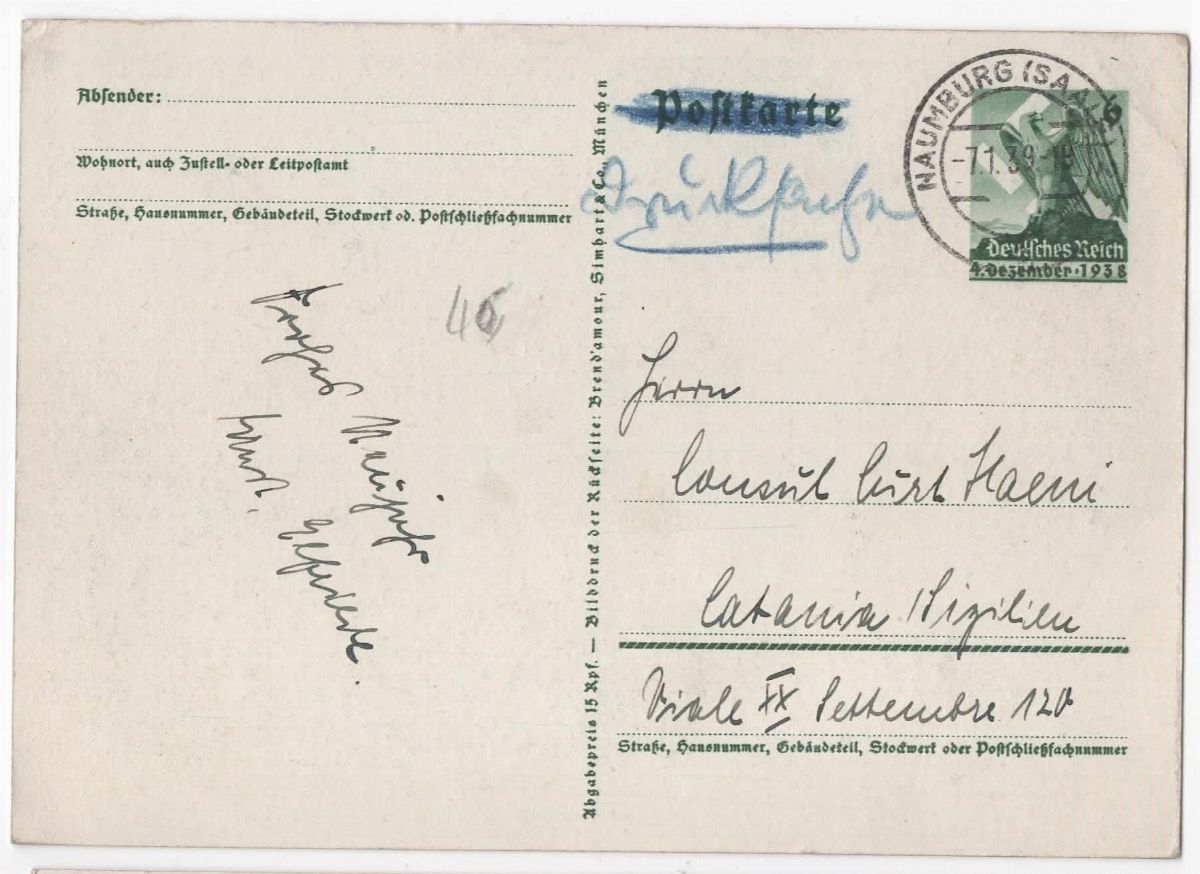 Absender:
Wohnort, auch Zustell- oder Leitpostamt
Straße, Hausnummer, Gebäudeteil, Stockwerk od. Postschließfachnummer
Frohes Neujahr
Elfriede.
46
Abgabepreis 15 Rpf. — Bilddruck der Rückseite: Brend'amour, Simhart & Co., München
Postkarte
Drucksache
NAUMBURG (SAA
-7.1.39-19
6
Deutsches Reich
4. Dezember · 1938
Herrn
Consul Curt Haeni
Catania / Sizilien
Viale XX Settembre 120
Straße, Hausnummer, Gebäudeteil, Stockwerk oder Postschließfachnummer